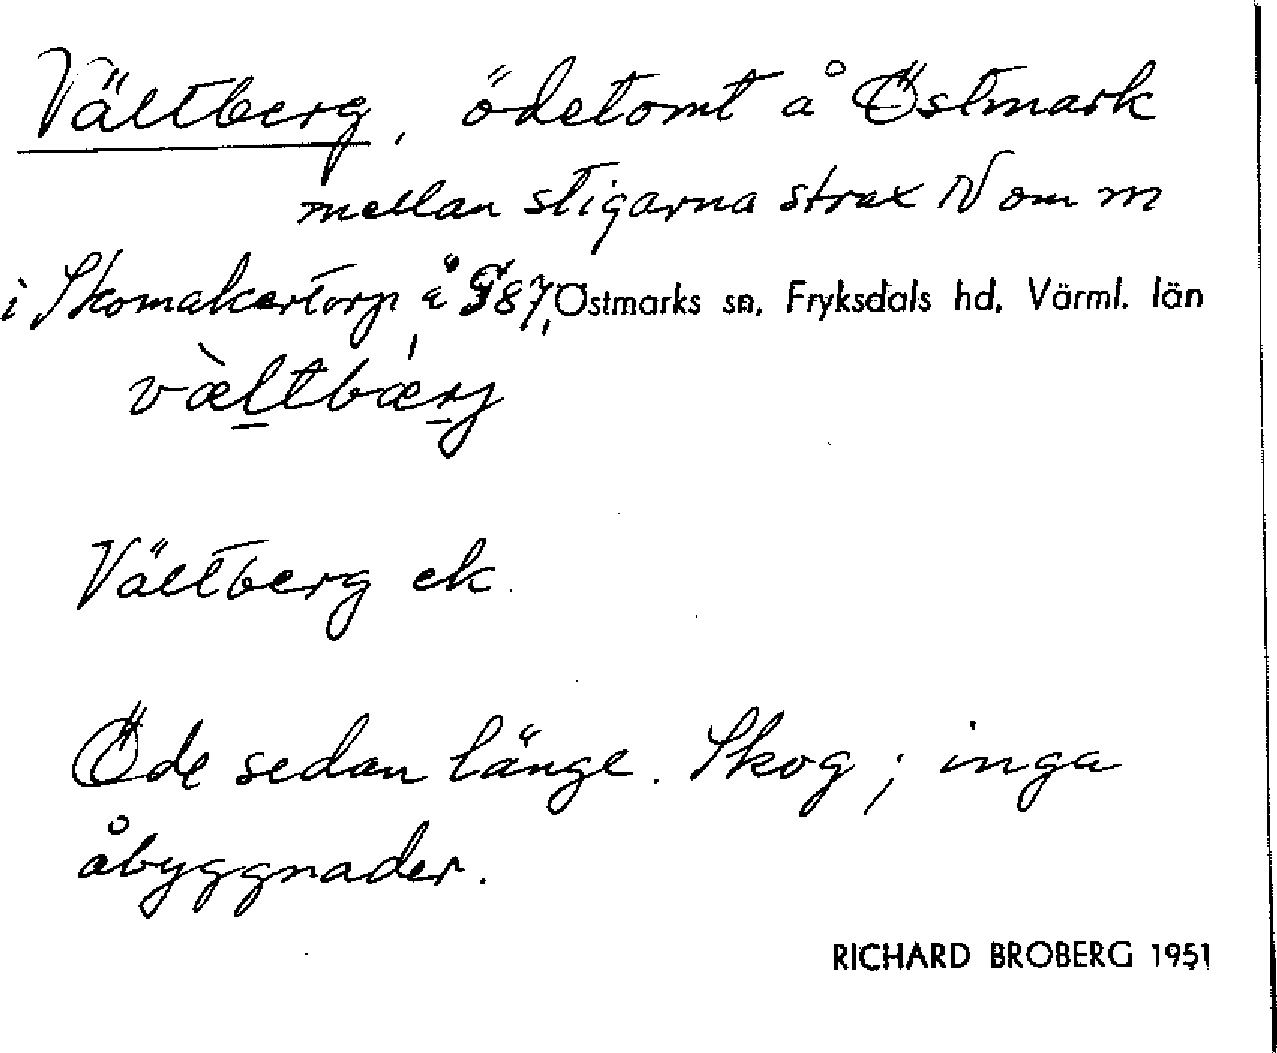 Vältberg, ödetomt å Östmark
mellan stigarna strax N om m
i Skomakartorp å T87, Östmarks sn, Fryksdals hd, Värml. län
væ̀ltbæ̀rj
Vältberg ek.
Öde sedan länge. Skog; inga
åbyggnader.
RICHARD BROBERG 1951